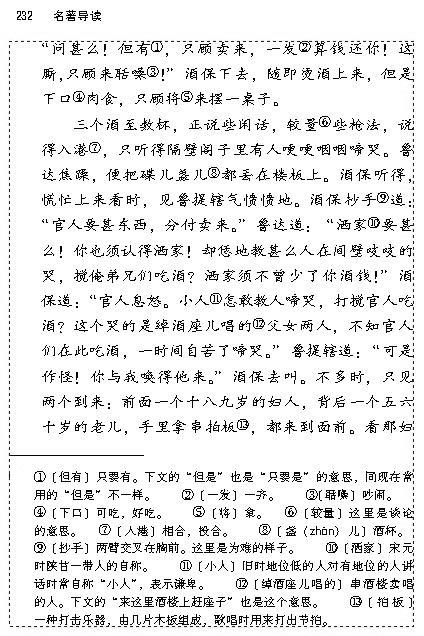 232 名著导读
“问甚么！但有①，只顾卖来，一发②算钱还你！这
厮，只顾来聒噪③！”酒保下去，随即烫酒上来，但是
下口④肉食，只顾将⑤来摆一桌子。
三个酒至数杯，正说些闲话，较量⑥些枪法，说
得入港⑦，只听得隔壁阁子里有人哽哽咽咽啼哭。鲁
达焦躁，便把碟儿盏儿⑧都丢在楼板上。酒保听得，
慌忙上来看时，见鲁提辖气愤愤地。酒保抄手⑨道：
“官人要甚东西，分付卖来。”鲁达道：“洒家⑩要甚
么！你也须认得洒家！却恁地教甚么人在间壁吱吱的
哭，搅俺弟兄们吃酒？洒家须不曾少了你酒钱！”酒
保道：“官人息怒。小人⑪怎敢教人啼哭，打搅官人吃
酒？这个哭的是绰酒座儿唱的⑫父女两人，不知官人
们在此吃酒，一时间自苦了啼哭。”鲁提辖道：“可是
作怪！你与我唤得他来。”酒保去叫。不多时，只见
两个到来：前面一个十八九岁的妇人，背后一个五六
十岁的老儿，手里拿串拍板⑬，都来到面前。看那妇
①〔但有〕只要有。下文的“但是”也是“只要是”的意思，同现在常
用的“但是”不一样。 ②〔一发〕一齐。 ③〔聒噪〕吵闹。
④〔下口〕可吃，好吃。 ⑤〔将〕拿。 ⑥〔较量〕这里是谈论
的意思。 ⑦〔入港〕相合，投合。 ⑧〔盏（zhǎn）儿〕酒杯。
⑨〔抄手〕两臂交叉在胸前。这里是为难的样子。 ⑩〔洒家〕宋元
时陕甘一带人的自称。 ⑪〔小人〕旧时地位低的人对有地位的人讲
话时常自称“小人”，表示谦卑。 ⑫〔绰酒座儿唱的〕串酒楼卖唱
的人。下文的“来这里酒楼上赶座子”也是这个意思。 ⑬〔拍板〕
一种打击乐器，由几片木板组成，歌唱时用来打出节拍。